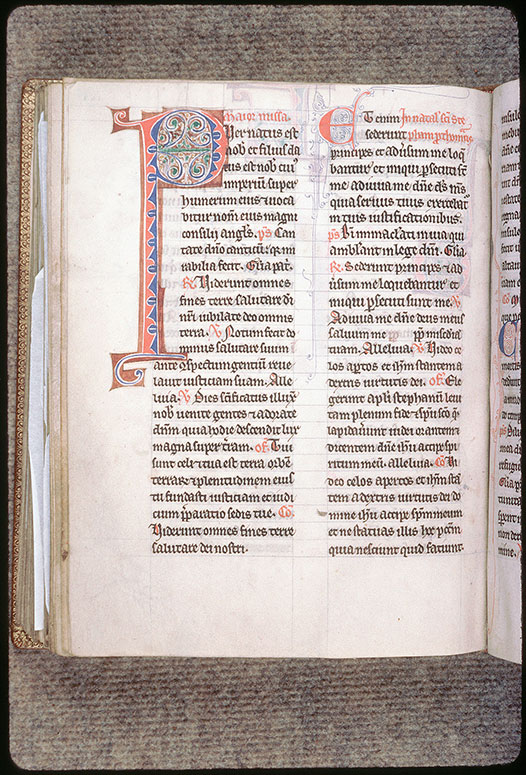 maior missa.
Puer natus est
nob et filius da
tus est nob cuꝰ
imperiū super
humerum eius ⁊ uoca
bitur nom̄ eius magni
consilii angls. ps Can
tate dno canticū
mirabilia fecit. Gl̄ia pat.
R Uiderunt omnes
fines terre salutare di
nr̄i iubilate deo omnis
terra. V Notum fecit do
minus salutare suum
ante conspectum gentiū reue
lauit iusticiam suam. Alle
luia. V Dies sc̄ificatus illux̄
nob̄ uenite gentes ⁊ adorate
dn̄m quia hodie descendit lux
magna super t̄ram. of. Tui
sunt celi ⁊ tua est terra orbē
terrarꝝ ⁊ plenitudinem eius
tu fundasti iusticiam et iudi
cium p̄paratio sedis tue. Co.
Uiderunt omnes fines terre
salutare dei nostri.
Etenim In natal sc̄i ste
sederunt phani prothom̄ris
principes et adūsum me loq̄
bantur et iniqui persecuti s̄t
me adiuua me dn̄e ds̄ ms̄
quia seruus tuus exercebat̄
in tuis iustificationibus.
ps Bt̄i immaclati in uia qui
ambl̄ant in lege dn̄i. Gl̄ia
R. Sederunt principes ⁊ ad
ūsum me loquebantur et
iniqui persecuti sunt me. V
Adiuua me dn̄e deus meus
saluum me pp̄ misc̄dia
tuam. Alleluia. V Uideo ce
los ap̄tos et ih̄m stantem a
dextris uirtutis dei. of. Ele
gerunt apl̄i stephanū leui
tam plenum fide ⁊ sp̄u sc̄o q̄
lapidauer̄unt iudei orantem
dicentem dn̄e ih̄u accipe sp̄i
ritum meū. alleluia. Co. Ui
deo celos apertos et ih̄m stan
tem a dextris uirtutis dei do
mine ih̄u accipe sp̄m meum
et ne statuas illis hoc pctm̄
quia nesciunt quid faciunt.